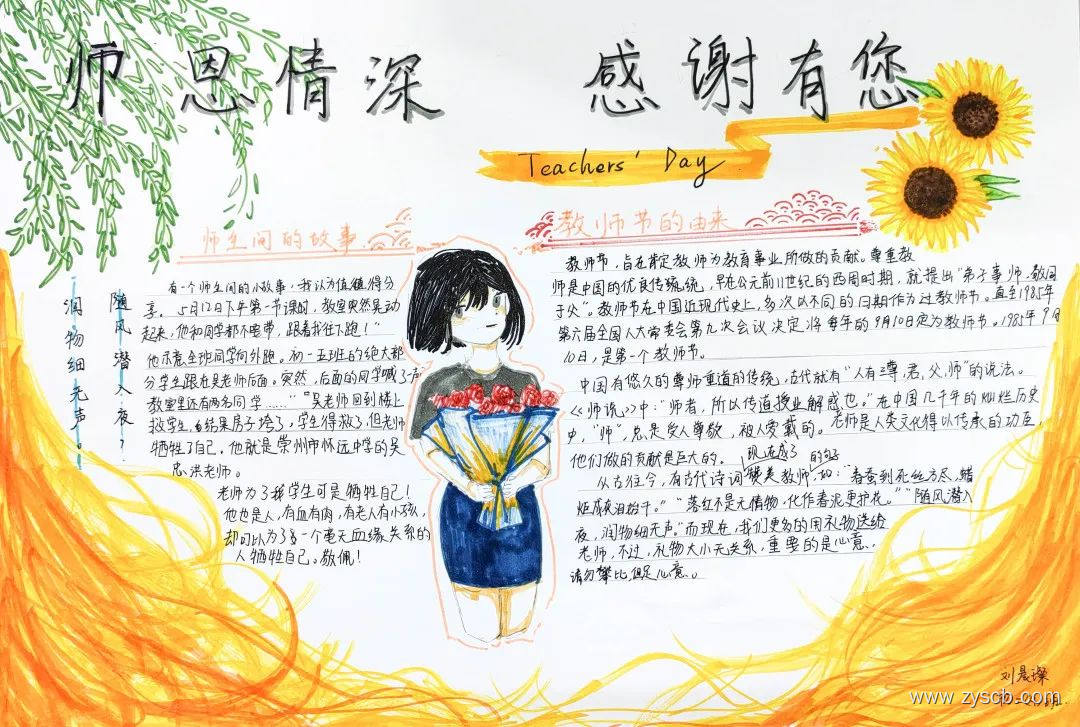 师恩情深 感谢有您
Teachers' Day
师生间的故事
教师节的由来
随风潜入夜,
润物细无声。
有一个师生间的小故事,我认为值得得分
享。5月12日下午第一节课时,教室突然晃动
起来,他和同学都不要带,跟着我往下跑!"
他示意全班同学向外跑。初一五班的绝大部
分学生跟在吴老师后面。突然,后面的同学喊了一声
教室里还有两名同学……""吴老师回到楼上
救学生,结果房子垮了,学生得救了,但老师
牺牲了自己。他就是崇州市怀远中学的吴
忠洪老师。
老师为了救学生可是牺牲自己!
他也是人,有血有肉,有老人有小孩,
却可以为了一个毫无血缘关系的
人牺牲自己。敬佩!
教师节,旨在肯定教师为教育事业所做的贡献。尊重教
师是中国的优良传统,早在公元前11世纪的西周时期,就提出"弟子事师,敬同
于父"。教师节在中国近现代史上,多次以不同的日期作为过教师节。直至1985年
第六届全国人大常委会第九次会议决定将每年的9月10日定为教师节。1985年9月
10日,是第一个教师节。
中国有悠久的尊师重道的传统,古代就有"人有三尊,君,父,师"的说法。
《师说》中:"师者,所以传道授业解惑也。"在中国几千年的灿烂历史
中,"师",总是受人尊敬,被人爱戴的。老师是人类文化得以传承的功臣,
他们做的贡献是巨大的。
从古往今,有古代诗词赞美教师,如:"春蚕到死丝方尽,蜡
炬成灰泪始干。""落红不是无情物,化作春泥更护花。""随风潜入
夜,润物细无声。"而现在,我们更多的用礼物送给
老师,不过,礼物大小无关系,重要的是心意。
请勿攀比但足心意。
刘晨璨
www.zyscb.com